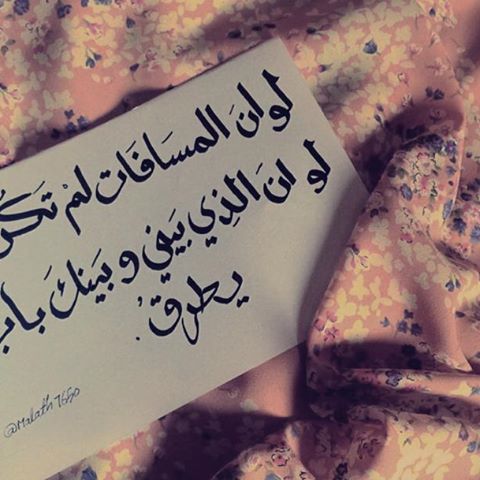 لو انَ المسَافَات لمْ تَكُ
لو انَ الذِي بَيني و بَينكَ بَاب
يطرقُ.
@Malath7660